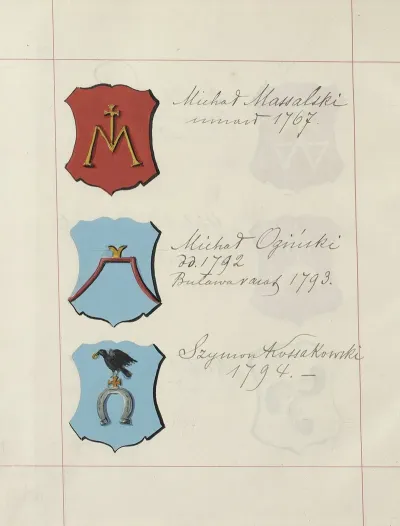 Michał Massalski
umarł 1767.
Michał Ogiński
dd. 1792
Buława vacat 1793.
Szymon Kossakowski
1794. —